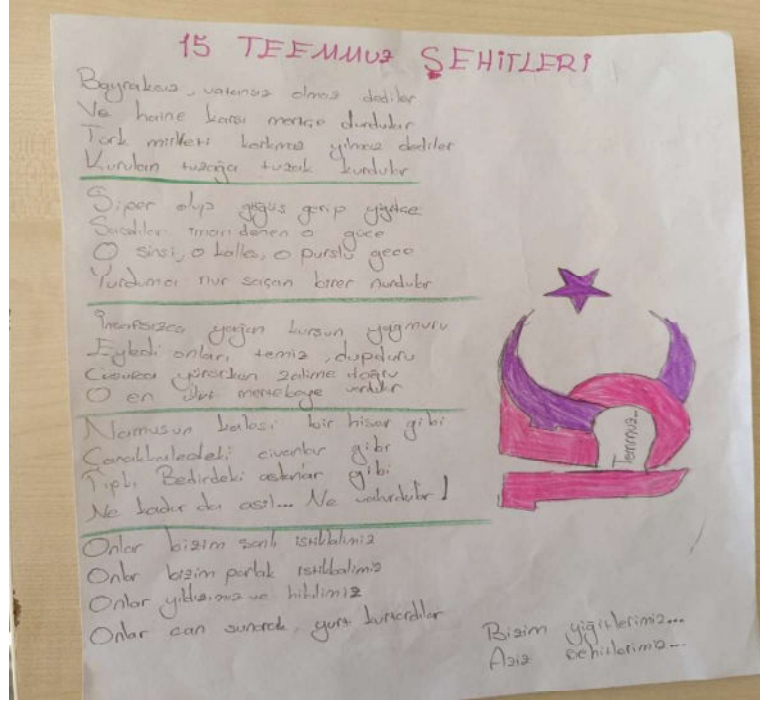 15 TEEMMUZ ŞEHİTLERİ
Bayraksız, vatansız olmaz dediler
Ve haine karşı mertçe durdular
Türk milleti korkmaz yılmaz dediler
Kurulan tuzağa tuzak kurdular
Siper olup göğüs gerip yiğitçe
iman denen o güce
O sinsi, o kalleş, o puslu gece
Yurduma nur saçan birer nurdular
İnsafsızca yağan kurşun yağmuru
Eyledi onları temiz, dupduru
Cesurca yürürken zalime doğru
O en ulvi mertebeye vardılar
Namusun kalesi bir hisar gibi
Çanakkaledeki civanlar gibi
Tıpkı Bedirdeki aslanlar gibi
Ne kadar da asil... Ne vakurdular!
Onlar bizim şanlı istiklalimiz
Onlar bizim parlak istikbalimiz
Onlar yıldızımız ve hilalimiz
Onlar can sunarak, yurt kurtardılar
Bizim yiğitlerimiz...
Aziz şehitlerimiz...
15
Temmuz...